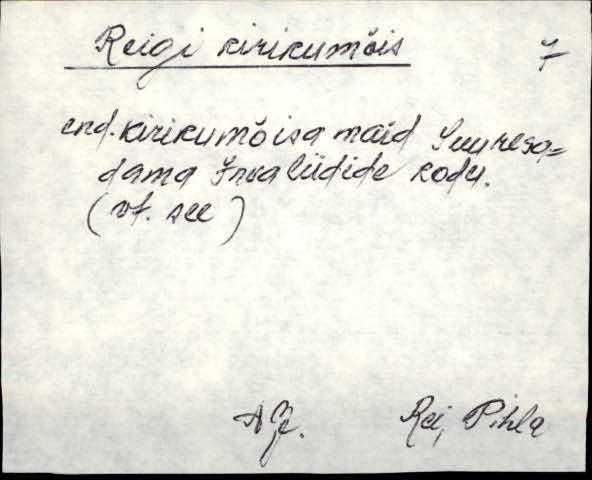 Reigi kirikumõis 7
end. kirikumõisa maid Suuresa=
dama Invaliidide kodu.
(vt. see)
Rei, Pihla